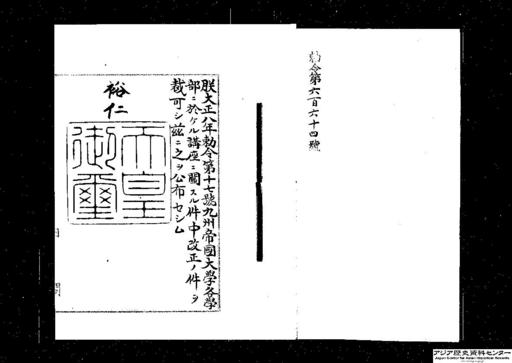 勅令第六百六十四號
朕大正八年勅令第十七號九州帝國大學各學
部ニ於ケル講座ニ關スル件中改正ノ件ヲ
裁可シ茲ニ之ヲ公布セシム
裕仁
天皇
御璽
アジア歴史資料センター
Japan Center for Asian Historical Records